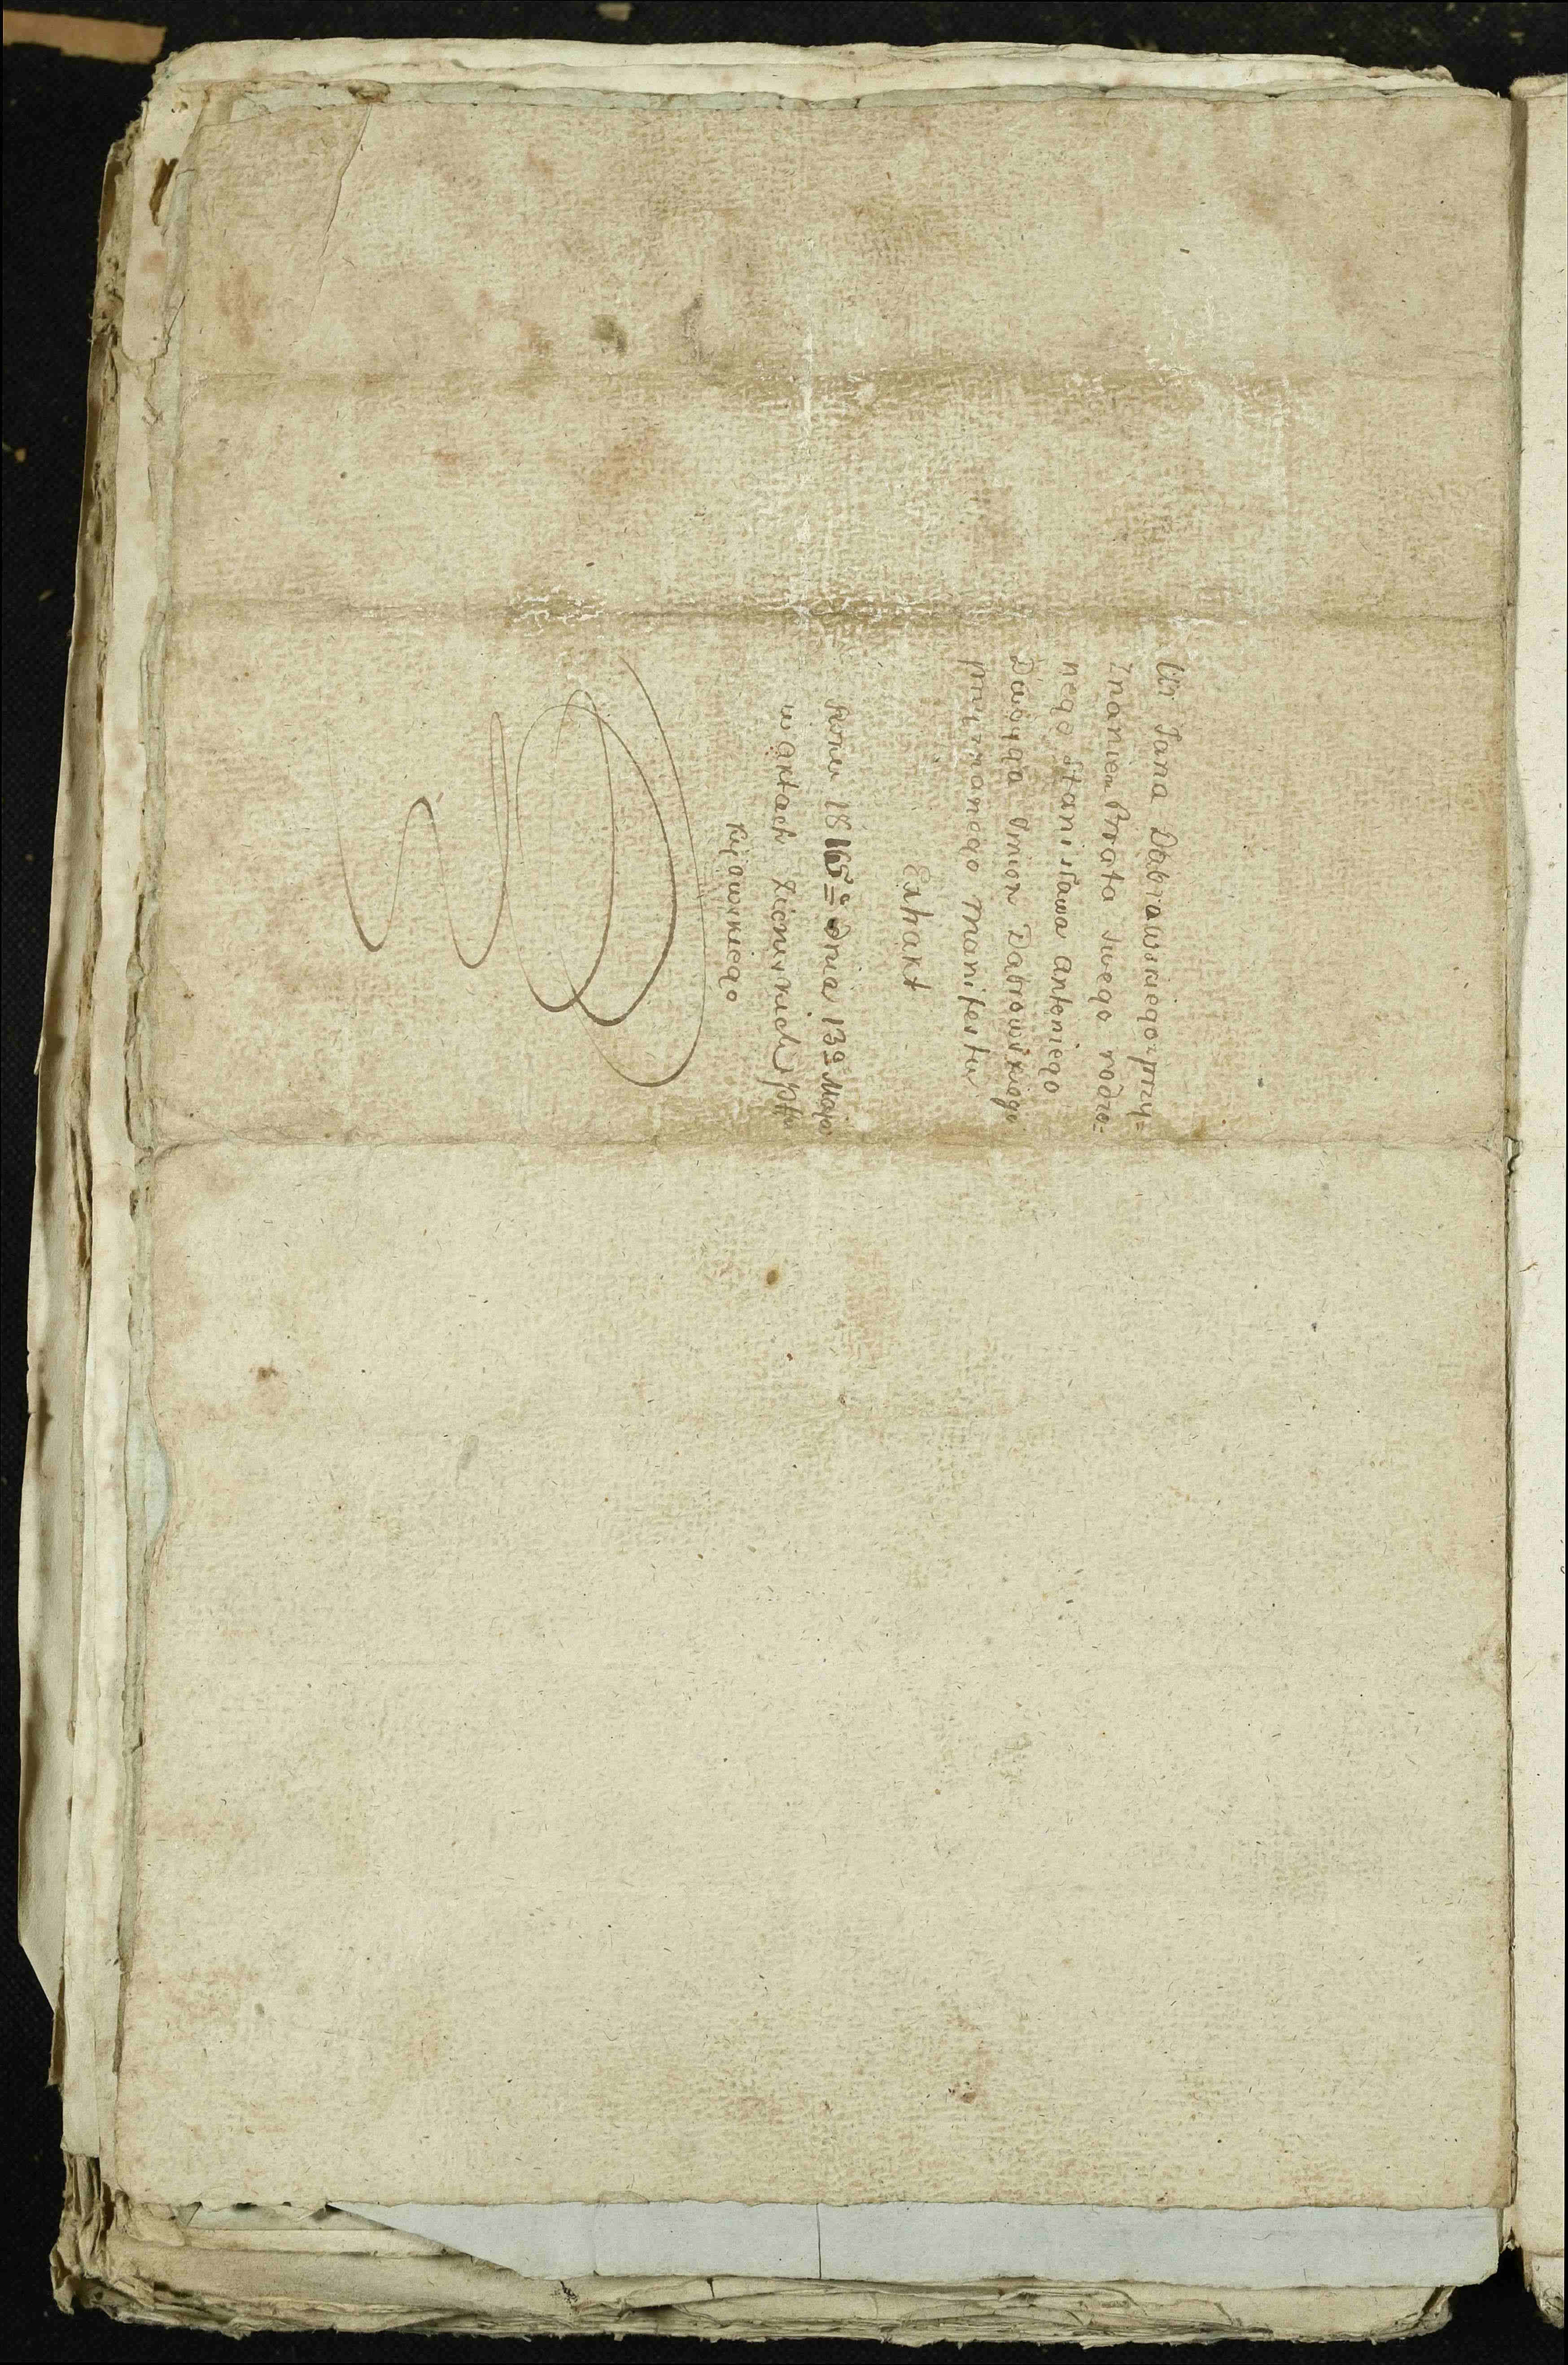 Ur Jana Dąbrowskiego przy=
znaniem Brata swego rodzo=
nego Stanisława Antoniego
Dwoyga Imion Dąbrowskiego
przyznanego Manifestu
Extrakt
Roku 18 dnia 13º Maja
w aktach Ziemskich pttu
Kijowskiego